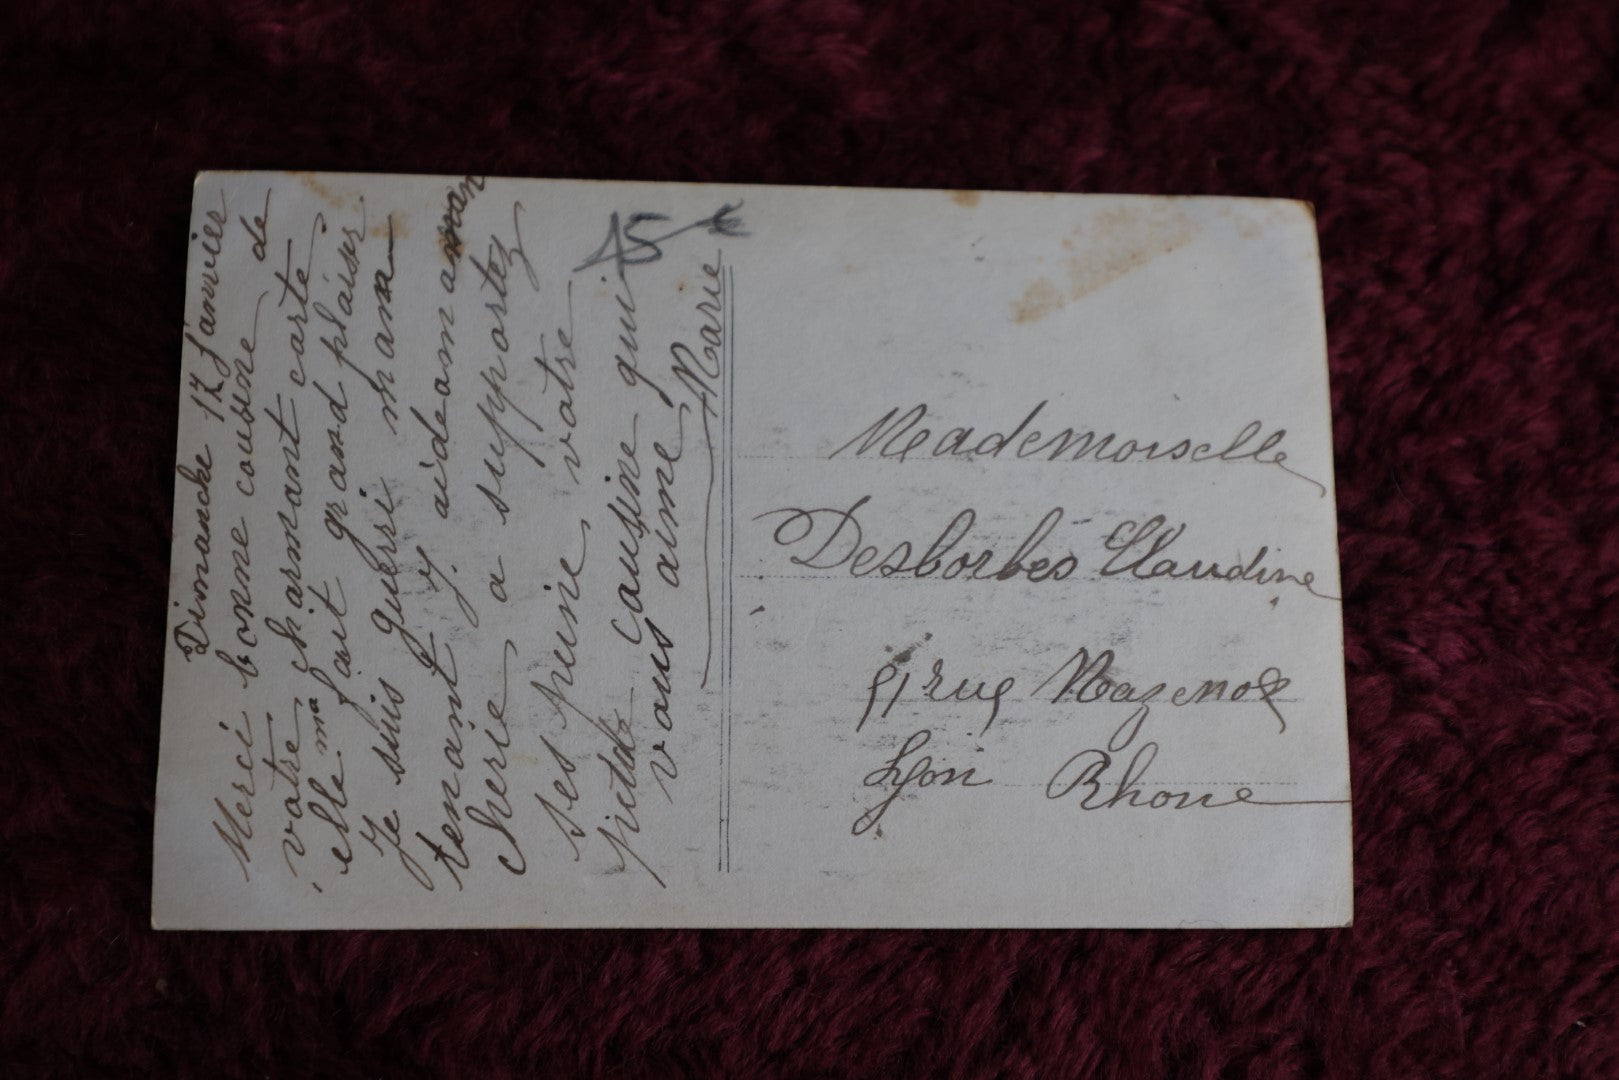 Dimanche 17 Janvier
Merci bonne cousine de
votre charmant carte
elle ma fait grand plaisir
Je suis guerri mama
tenant y aideam aman
cherie a supportez
ses peine votre
petite cousine qui
vous aime Marie
15
Mademoiselle
Desborbes Claudine
51 rue Mazenod
Lyon Rhone